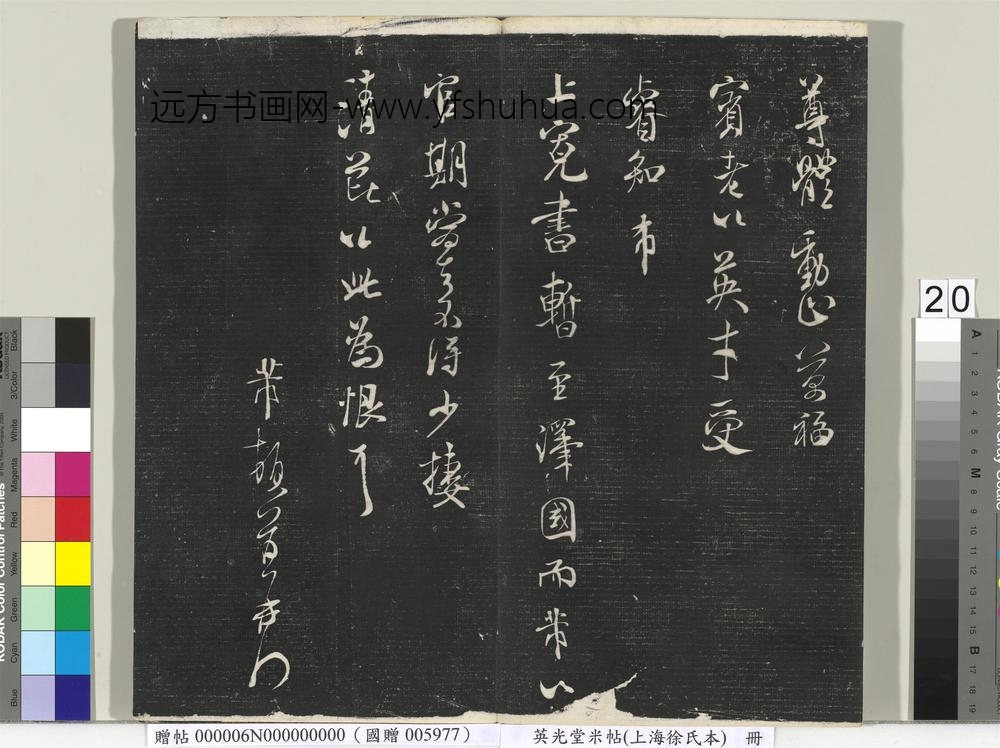 尊體動止萬福
賓老以英才受
睿知 芾
上寬書暫至澤國而芾以
官期當去不得少摟
清芬以此為恨
芾頓首
远方书画网-www.yfshuhua.com
20
贈帖 000006N000000000 (國贈 005977)
英光堂米帖(上海徐氏本) 冊
KODAK Color Control Patches
Blue Cyan Green Yellow Red Magenta White 3/Color Black
A 1 2 3 4 5 6 M 8 9 10 11 12 13 14 15 B 17 18 19